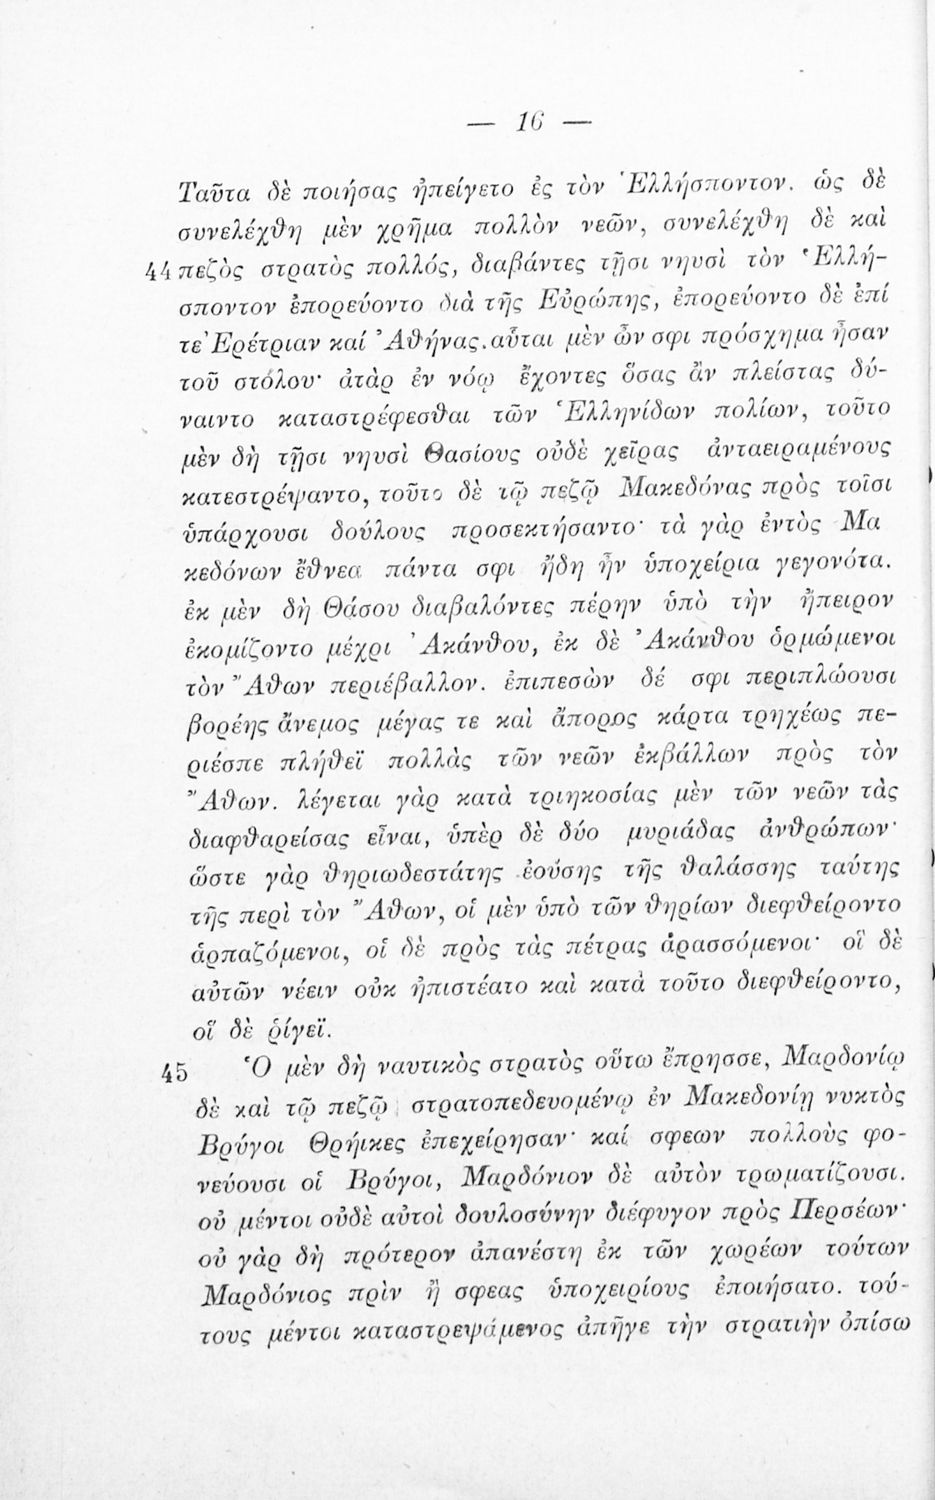 — 16 —
Ταῦτα δὲ ποιήσας ἠπείγετο ἐς τὸν Ἑλλήσποντον. ὡς δὲ
συνελέχθη μὲν χρῆμα πολλὸν νεῶν, συνελέχθη δὲ καὶ
44 πεζὸς στρατὸς πολλός, διαβάντες τῇσι νηυσὶ τὸν Ἑλλή-
σποντον ἐπορεύοντο διὰ τῆς Εὐρώπης, ἐπορεύοντο δὲ ἐπί
τε Ἐρέτριαν καί Ἀθήνας. αὗται μὲν ὦν σφι πρόσχημα ἦσαν
τοῦ στόλου· ἀτὰρ ἐν νόῳ ἔχοντες ὅσας ἂν πλείστας δύ-
ναιντο καταστρέφεσθαι τῶν Ἑλληνίδων πολίων, τοῦτο
μὲν δὴ τῇσι νηυσὶ Θασίους οὐδὲ χεῖρας ἀνταειραμένους
κατεστρέψαντο, τοῦτο δὲ τῷ πεζῷ Μακεδόνας πρὸς τοῖσι
ὑπάρχουσι δούλους προσεκτήσαντο· τὰ γὰρ ἐντὸς Μα
κεδόνων ἔθνεα πάντα σφι ἤδη ἦν ὑποχείρια γεγονότα.
ἐκ μὲν δὴ Θάσου διαβαλόντες πέρην ὑπὸ τὴν ἤπειρον
ἐκομίζοντο μέχρι Ἀκάνθου, ἐκ δὲ Ἀκάνθου ὁρμώμενοι
τὸν Ἄθων περιέβαλλον. ἐπιπεσὼν δέ σφι περιπλώουσι
βορέης ἄνεμος μέγας τε καὶ ἄπορος κάρτα τρηχέως πε-
ριέσπε πλήθεϊ πολλὰς τῶν νεῶν ἐκβάλλων πρὸς τὸν
Ἄθων. λέγεται γὰρ κατὰ τριηκοσίας μὲν τῶν νεῶν τὰς
διαφθαρείσας εἶναι, ὑπὲρ δὲ δύο μυριάδας ἀνθρώπων·
ὥστε γὰρ θηριωδεστάτης ἐούσης τῆς θαλάσσης ταύτης
τῆς περὶ τὸν Ἄθων, οἱ μὲν ὑπὸ τῶν θηρίων διεφθείροντο
ἁρπαζόμενοι, οἱ δὲ πρὸς τὰς πέτρας ἀρασσόμενοι· οἳ δὲ
αὐτῶν νέειν οὐκ ἠπιστέατο καὶ κατὰ τοῦτο διεφθείροντο,
οἳ δὲ ῥίγεϊ.
45 Ὁ μὲν δὴ ναυτικὸς στρατὸς οὕτω ἔπρησσε, Μαρδονίῳ
δὲ καὶ τῷ πεζῷ στρατοπεδευομένῳ ἐν Μακεδονίῃ νυκτὸς
Βρύγοι Θρήικες ἐπεχείρησαν· καί σφεων πολλοὺς φο-
νεύουσι οἱ Βρύγοι, Μαρδόνιον δὲ αὐτὸν τρωματίζουσι.
οὐ μέντοι οὐδὲ αὐτοὶ δουλοσύνην διέφυγον πρὸς Περσέων·
οὐ γὰρ δὴ πρότερον ἀπανέστη ἐκ τῶν χωρέων τούτων
Μαρδόνιος πρὶν ἢ σφεας ὑποχειρίους ἐποιήσατο. τού-
τους μέντοι καταστρεψάμενος ἀπῆγε τὴν στρατιὴν ὀπίσω